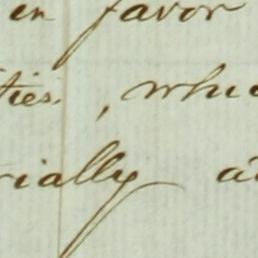 en favor
ties, whi
rially a